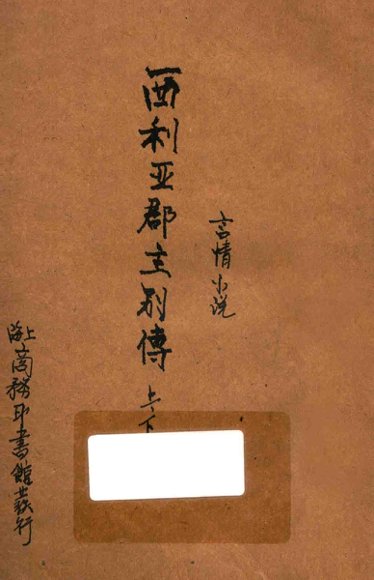 言情小说
西利亚郡主别傳 上、下
上海商務印書館發行